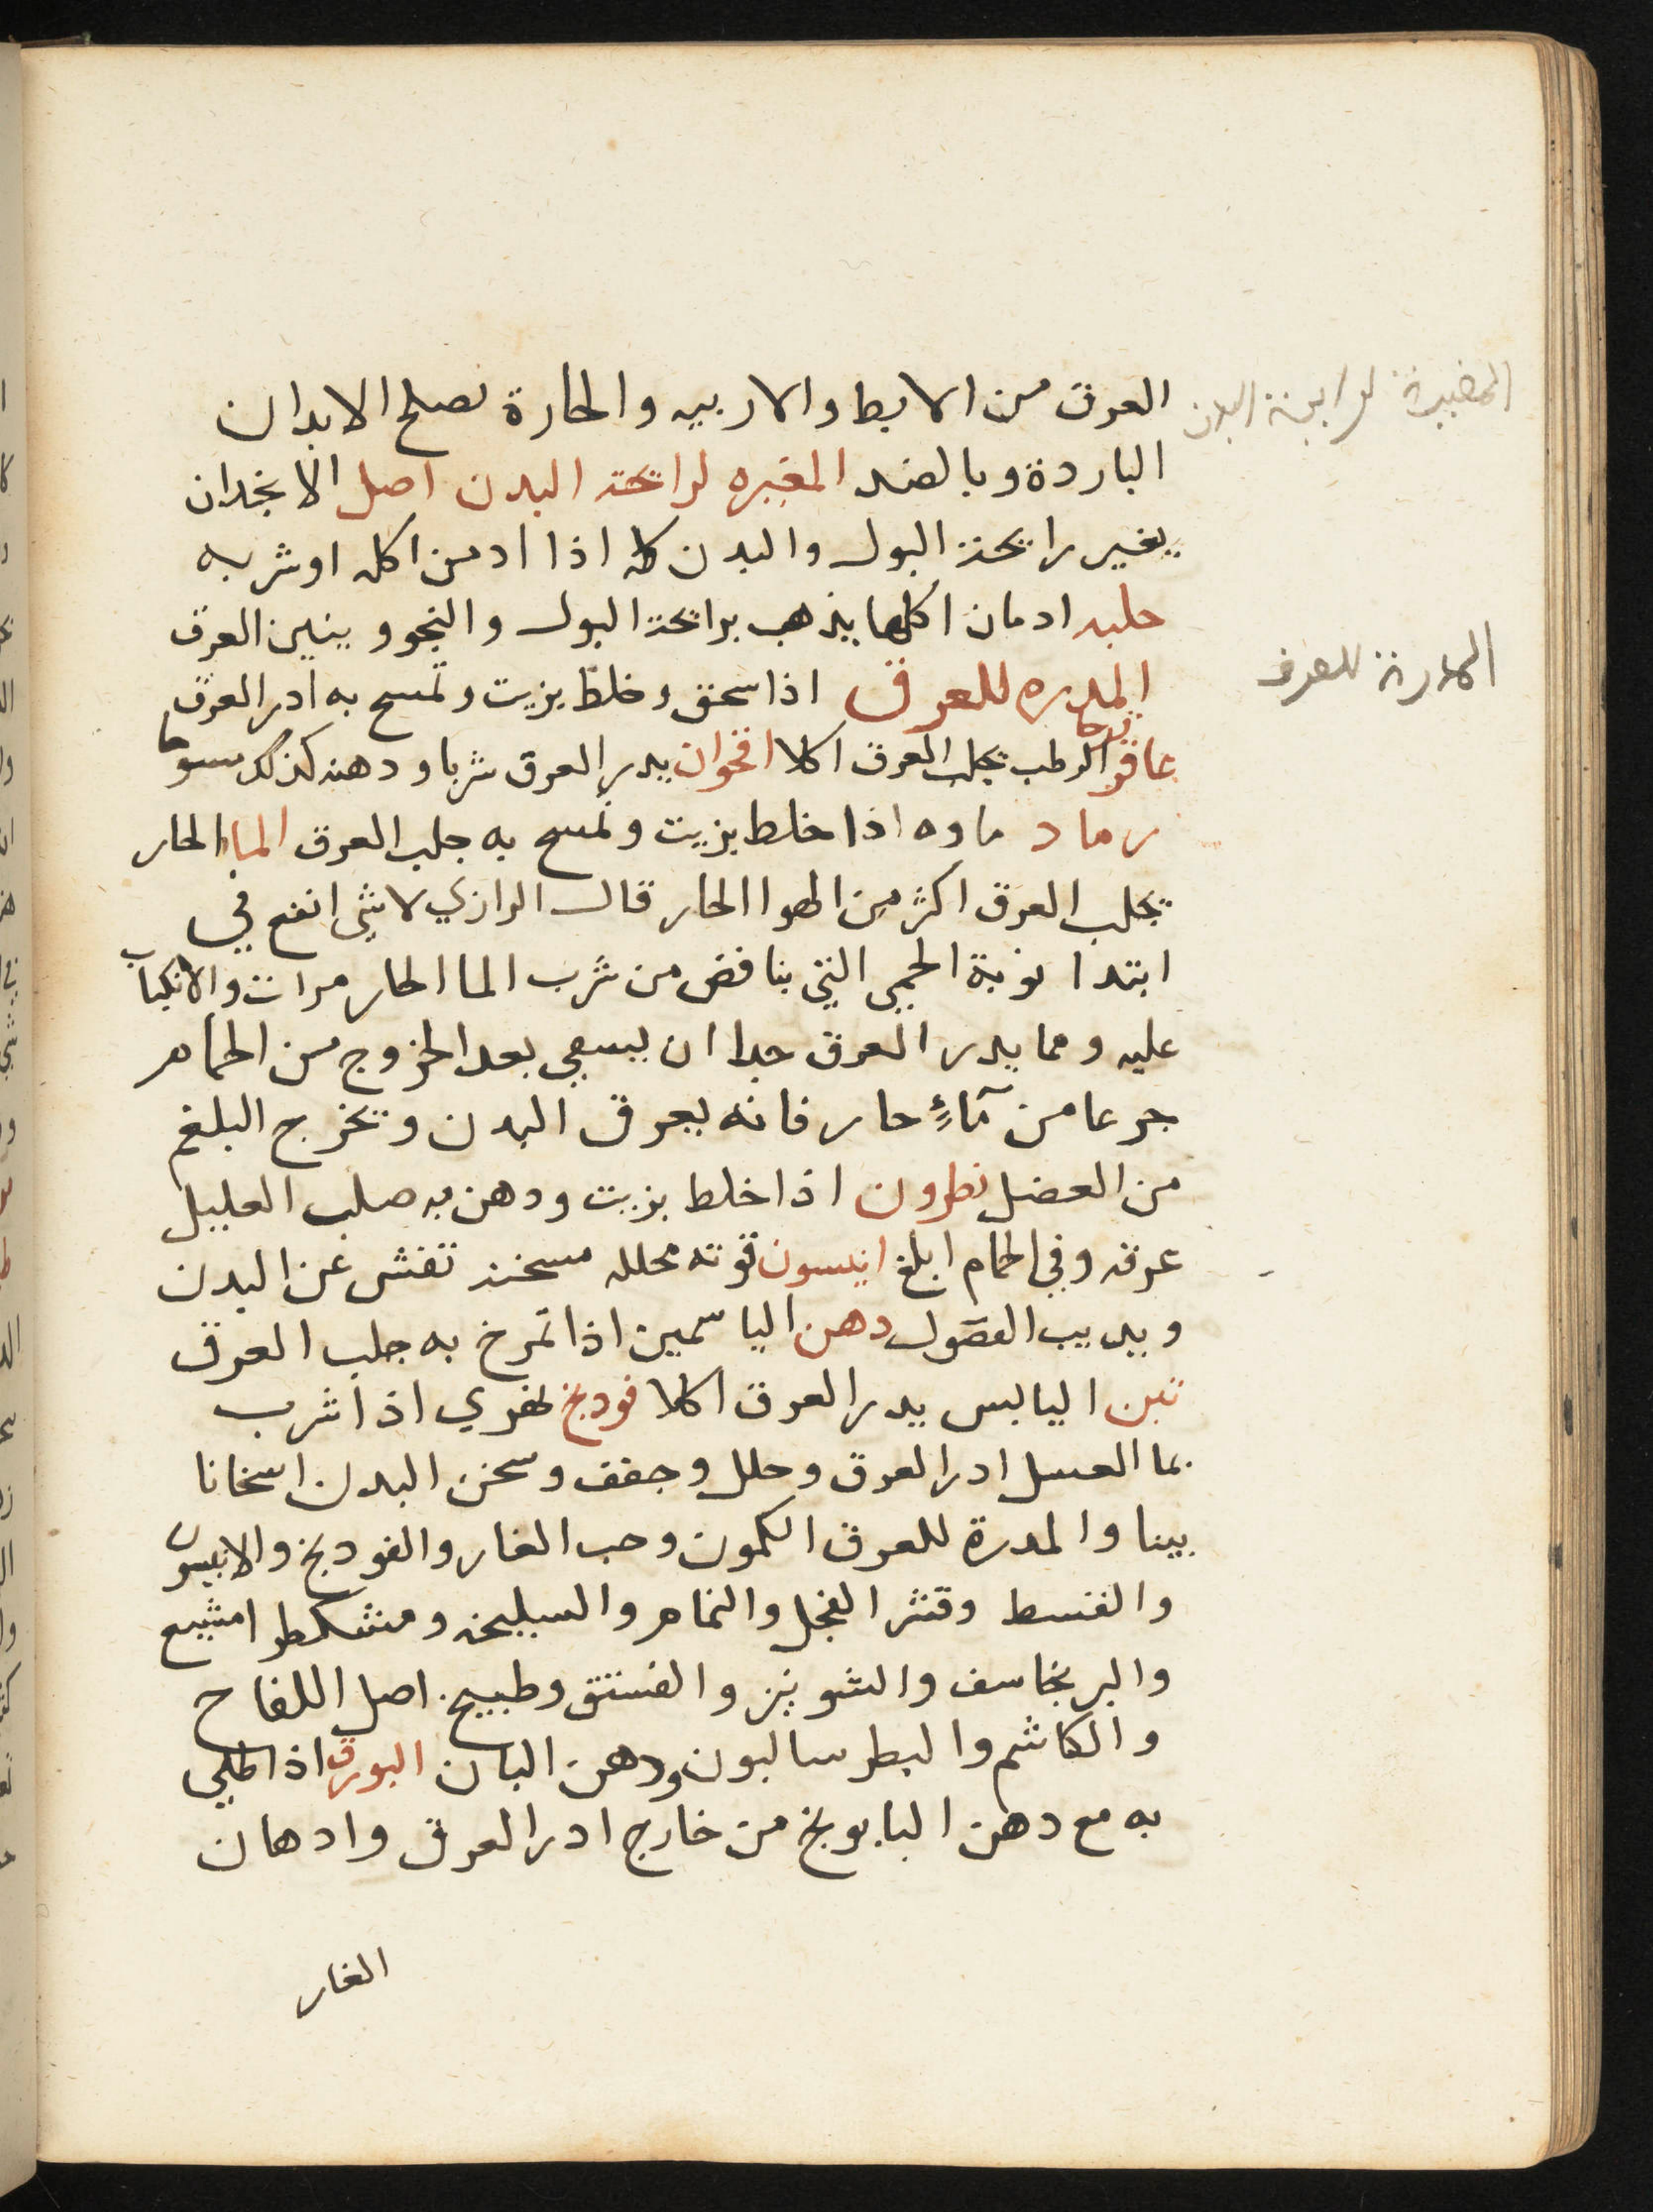 العرق من الابط والاربيه والحارة تصلح الابدان
الباردة وبالضد المغيره لرائحة البدن اصل الانجدان
يغير رائحة البول والبدن كله اذا ادمن اكله او شربه
حلبه ادمان اكلها يذهب برائحة البول والنجو وينتن العرق
المدره للعرق اذا سحق وخلط بزيت وتمسح به ادر العرق
عاقر قرحا الرطب يجلب العرق اكلا اقحوان يدر العرق شربا ودهنه كذلك مسوحا
رماد ماوه اذا خلط بزيت وتمسح به جلب العرق الماء الحار
يجلب العرق اكثر من الهوا الحار قال الرازي لا شي انفع في
ابتدا نوبة الحمى التي بنافض من شرب الما الحار مرات والانكباب
عليه ومما يدر العرق جدا ان يسقي بعد الخروج من الحمام
جرعا من مآءٍ حار فانه يعرق البدن ويخرج البلغم
من العضل نطرون اذا خلط بزيت ودهن به صلب العليل
عرقه وفي الحمام ابلغ انيسون قوته محلله مسخنه تفش عن البدن
ويذيب الفضول دهن الياسمين اذا تمرخ به جلب العرق
تين اليابس يدر العرق اكلا فودنج نهري اذا شرب
بما العسل ادر العرق وحلل وجفف وسخن البدن اسخانا
بينا والمدرة للعرق الكمون وحب الغار والفودنج والانيسون
والقسط وقشر الفجل والنمام والسليخه ومشكطرامشيع
والبرنجاسف والشونيز والفستق وطبيخ اصل اللفاح
والكاشم والبطرسالبون ودهن البان البورق اذا طلي
به مع دهن البابونج من خارج ادر العرق وادهان
الغار
المغيرة لرايحة البدن
المدرة للعرق